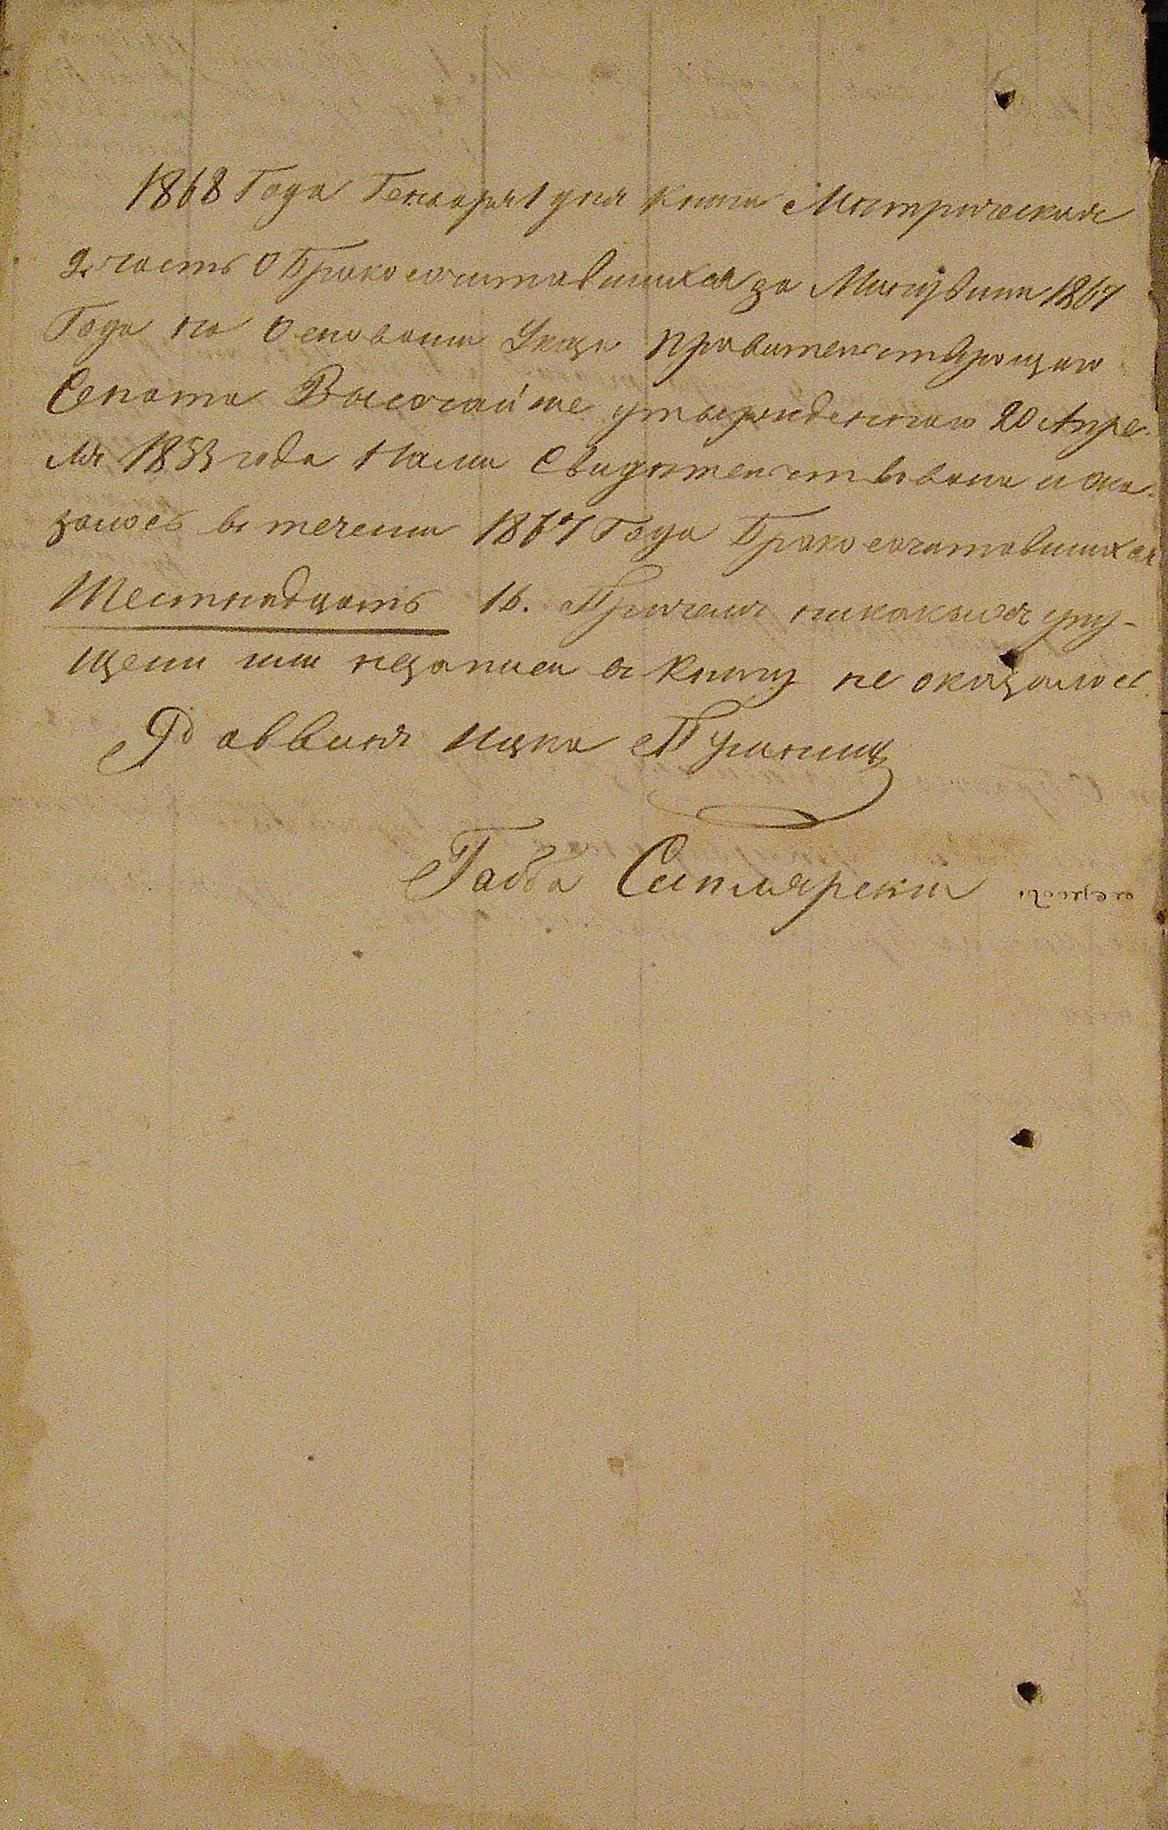 1868 Года Генваря 1 дня книги Метрическия
2. часть О Бракосочитавшихся за Минувши 1867
Года на Основани Указа Правительствующаго
Сената Высочайше утвержденнаго 20 Апре-
ля 1853 года Нами Свидетельствована и ока-
залось в течении 1867 Года Бракосочитавшихся
Шестнадцать 16. Причем никакыхъ упу-
щени или незаписи в книгу не оказалось
Раввин Ицка
Габба